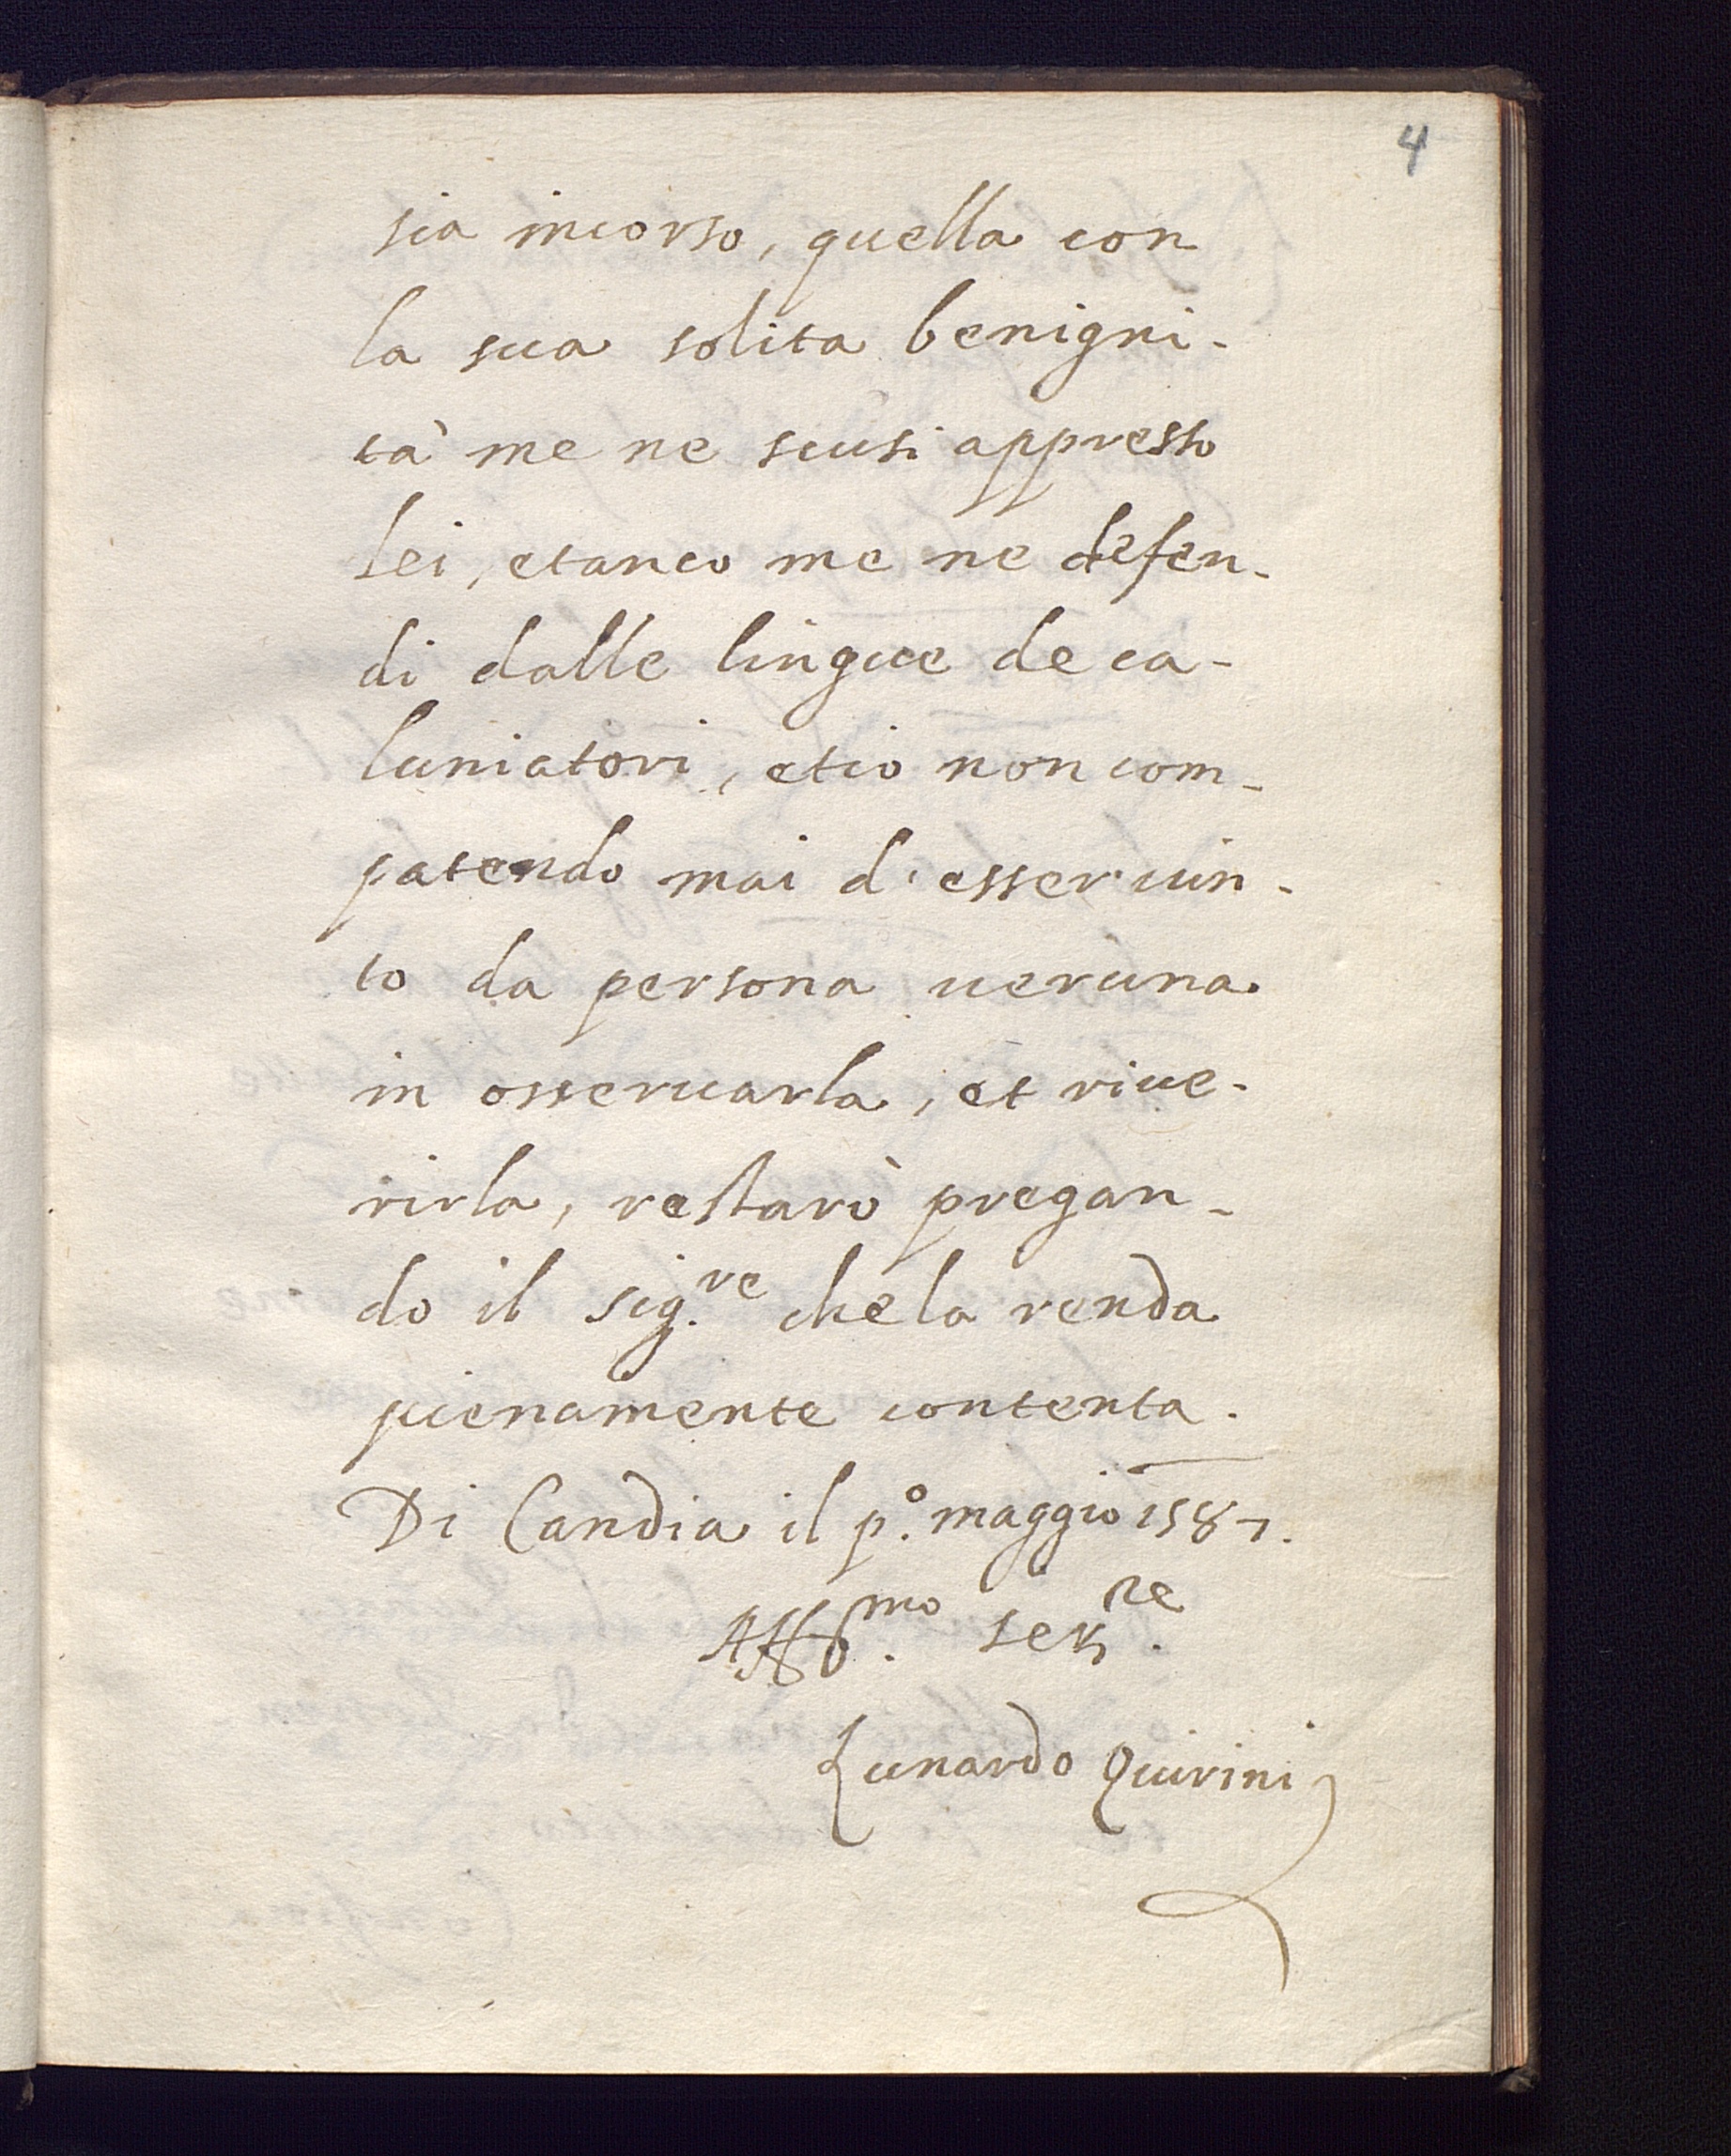 4
sia incorso, quella con
la sua solita benigni-
tà me ne scusi appresso
lei, et anco me ne defen-
di dalle lingue de ca-
luniatori, et io non com-
patendo mai d'esser uin-
to da persona ueruna
in osseruarla, et riue-
rirla, restarò pregan-
do il sig.re che la renda
pienamente contenta.
Di Candia il p.o maggio 1587.
Aff.mo ser.re
Lunardo Quirini